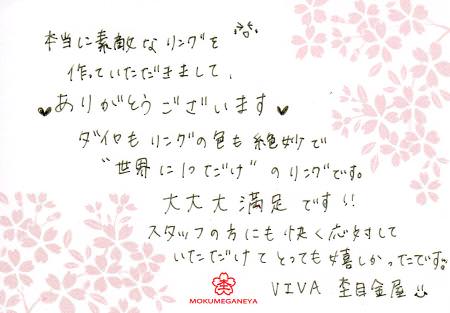 本当に素敵なリングを
作っていただきまして、
ありがとうございます
ダイヤもリングの色も絶妙で
"世界に1つだけ"のリングです。
大大大満足です!!
スタッフの方にも快く応対して
いただけてとっても嬉しかったです。
VIVA 杢目金屋
MOKUMEGANEYA